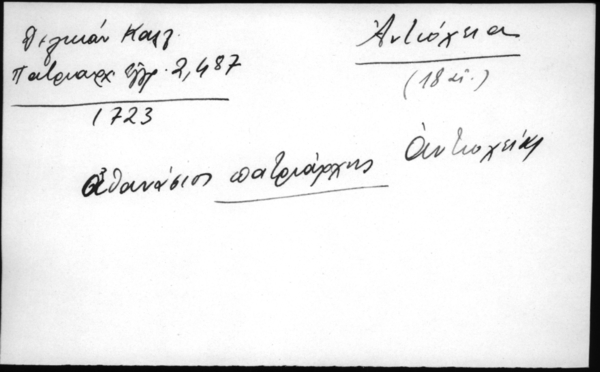 Δελικάν Καλλ.
Πατριαρχ. Ἔγγρ. 2,487
1723
Ἀντιόχεια
(18 αἰ.)
Ἀθανάσιος πατριάρχης Ἀντιοχείας